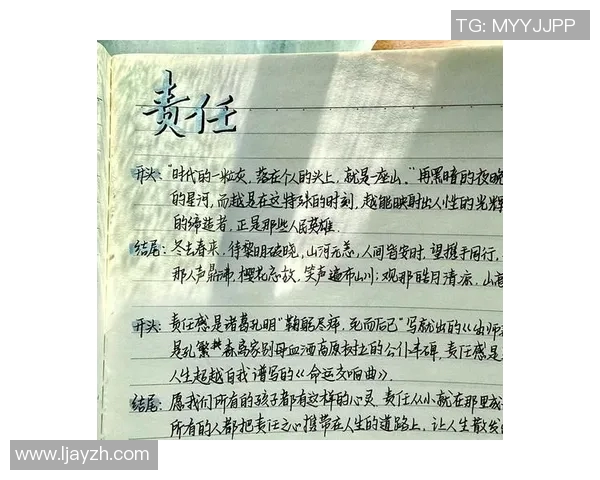 TG: MYYJJPP
责任
开头:"时代的一粒灰,落在个人的头上,就是一座山。"再黑暗的夜晚
的星河,而越是在这特殊的时刻,越能映射出人性的光辉
的缔造者,正是那些人民英雄.
结尾:冬去春来,待黎明破晓,山河无恙,人间皆安时,望携手同行,
那人声鼎沸,樱花怒放,笑声遍布山川;观那皓月清凉,山
开头:责任感是诸葛孔明"鞠躬尽瘁,死而后已"写就出的《出师
是孔繁森离家别母血洒高原树立的公仆丰碑,责任感是
人生超越自我谱写的《命运交响曲》.
结尾:愿我们所有的孩子都有这样的心灵,责任从小就在那里成
所有的人都把责任之心携带在人生的道路上,让人生散发
www.ljayzh.com